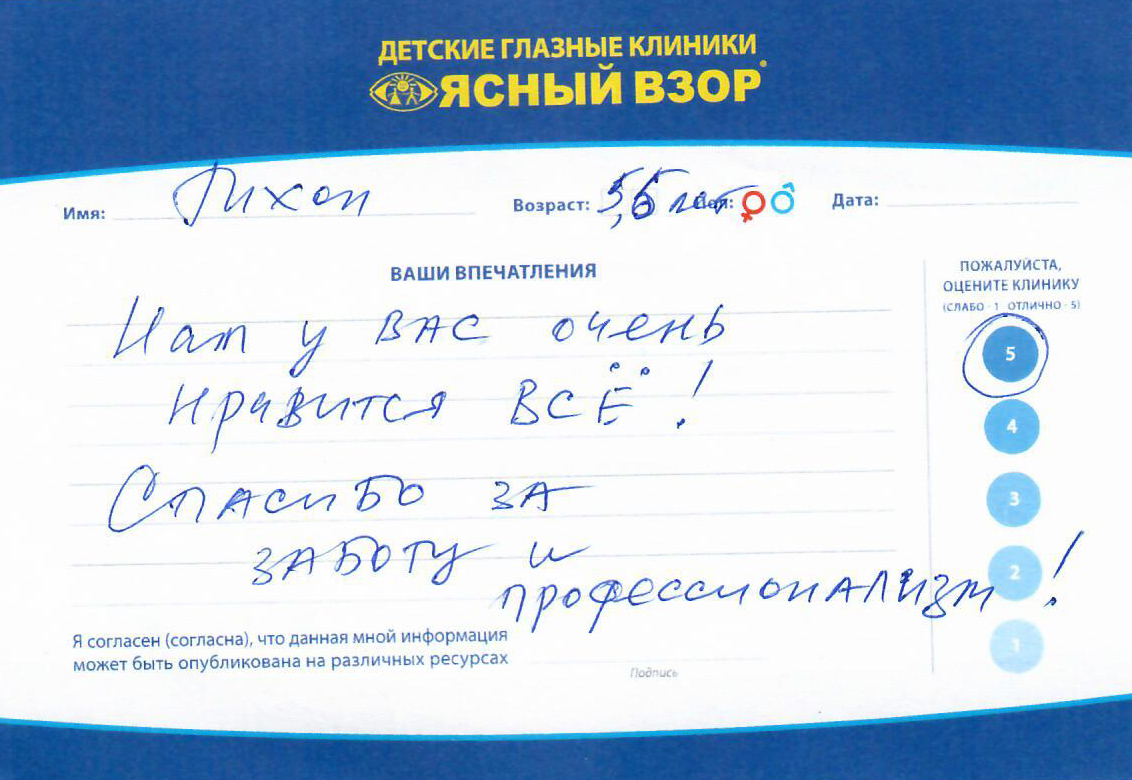 ДЕТСКИЕ ГЛАЗНЫЕ КЛИНИКИ
ЯСНЫЙ ВЗОР
Имя: Тихон Возраст: 5,5 лет Пол: Дата:
ВАШИ ВПЕЧАТЛЕНИЯ
Нам у ВАС очень
нравится ВСЁ!
Спасибо за
заботу и
профессионализм!
ПОЖАЛУЙСТА,
ОЦЕНИТЕ КЛИНИКУ
(СЛАБО - 1 ОТЛИЧНО - 5)
5
4
3
2
1
Я согласен (согласна), что данная мной информация
может быть опубликована на различных ресурсах
Подпись